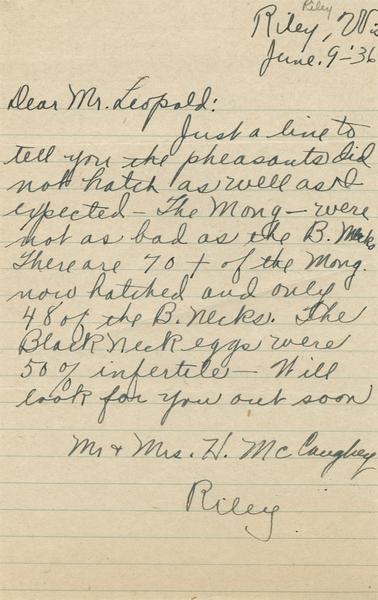 Riley
Riley, Wis
June. 9-36
Dear Mr. Leopold:
Just a line to
tell you the pheasants did
not hatch as well as I
expected - The Mong - were
not as bad as the B. Necks
There are 70 + of the Mong.
now hatched and only
48 of the B. Necks. The
Black Neck eggs were
50% infertile - Will
look for you out soon
Mr & Mrs. H. McCaughey
Riley